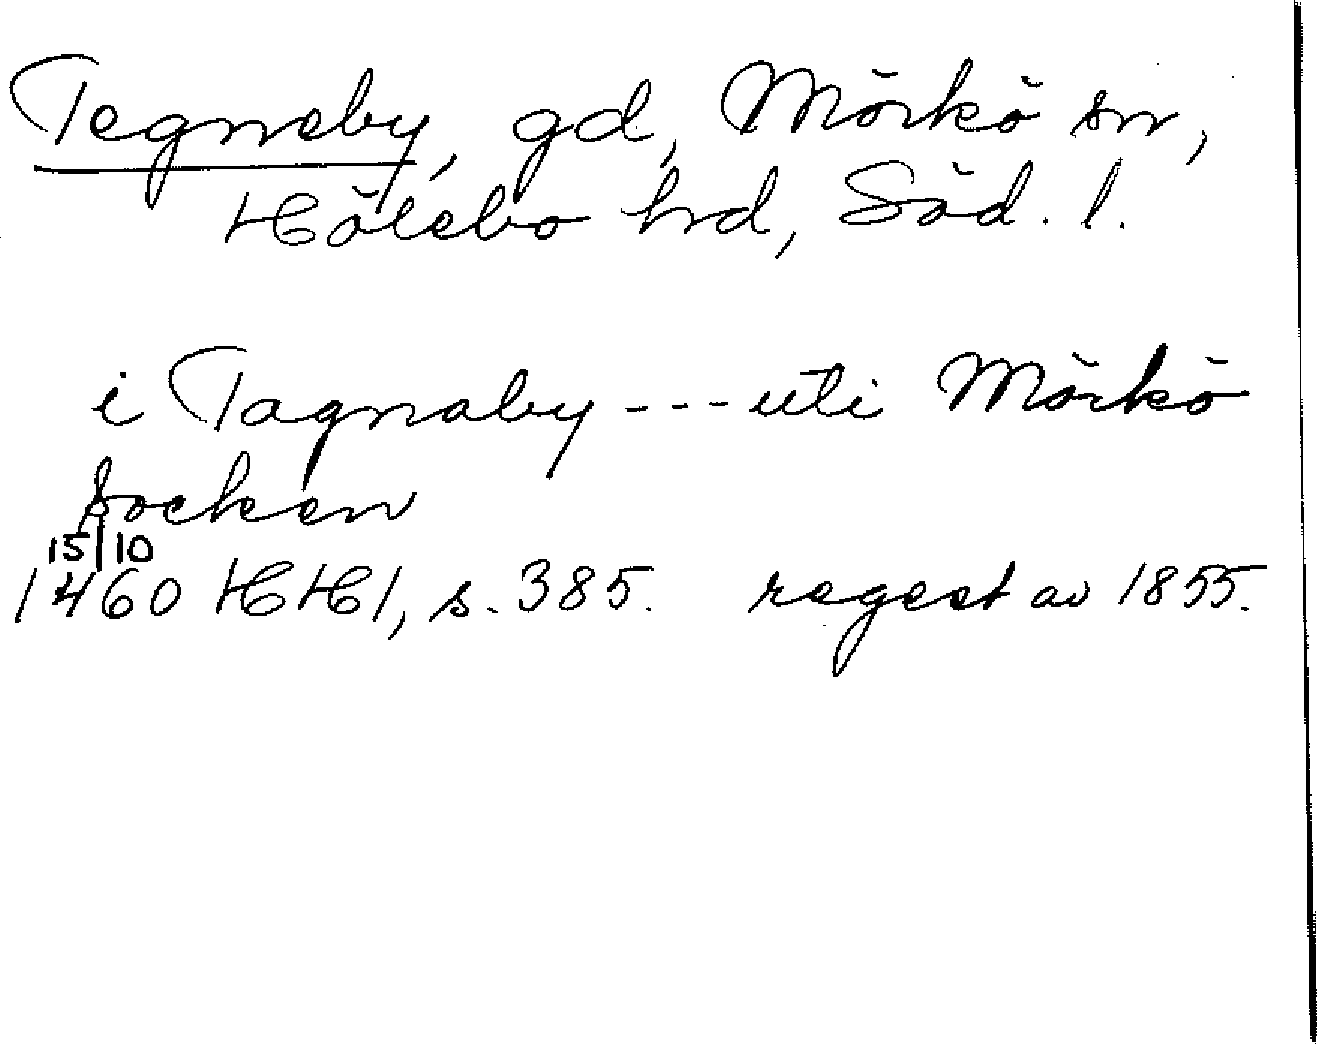 Tegneby, gd, Mörkö sn,
Hölebo hd, Söd. l.
i Tagnaby --- uti Mörkö
socken
15/10
1460 HH1, s. 385. regest av 1855.